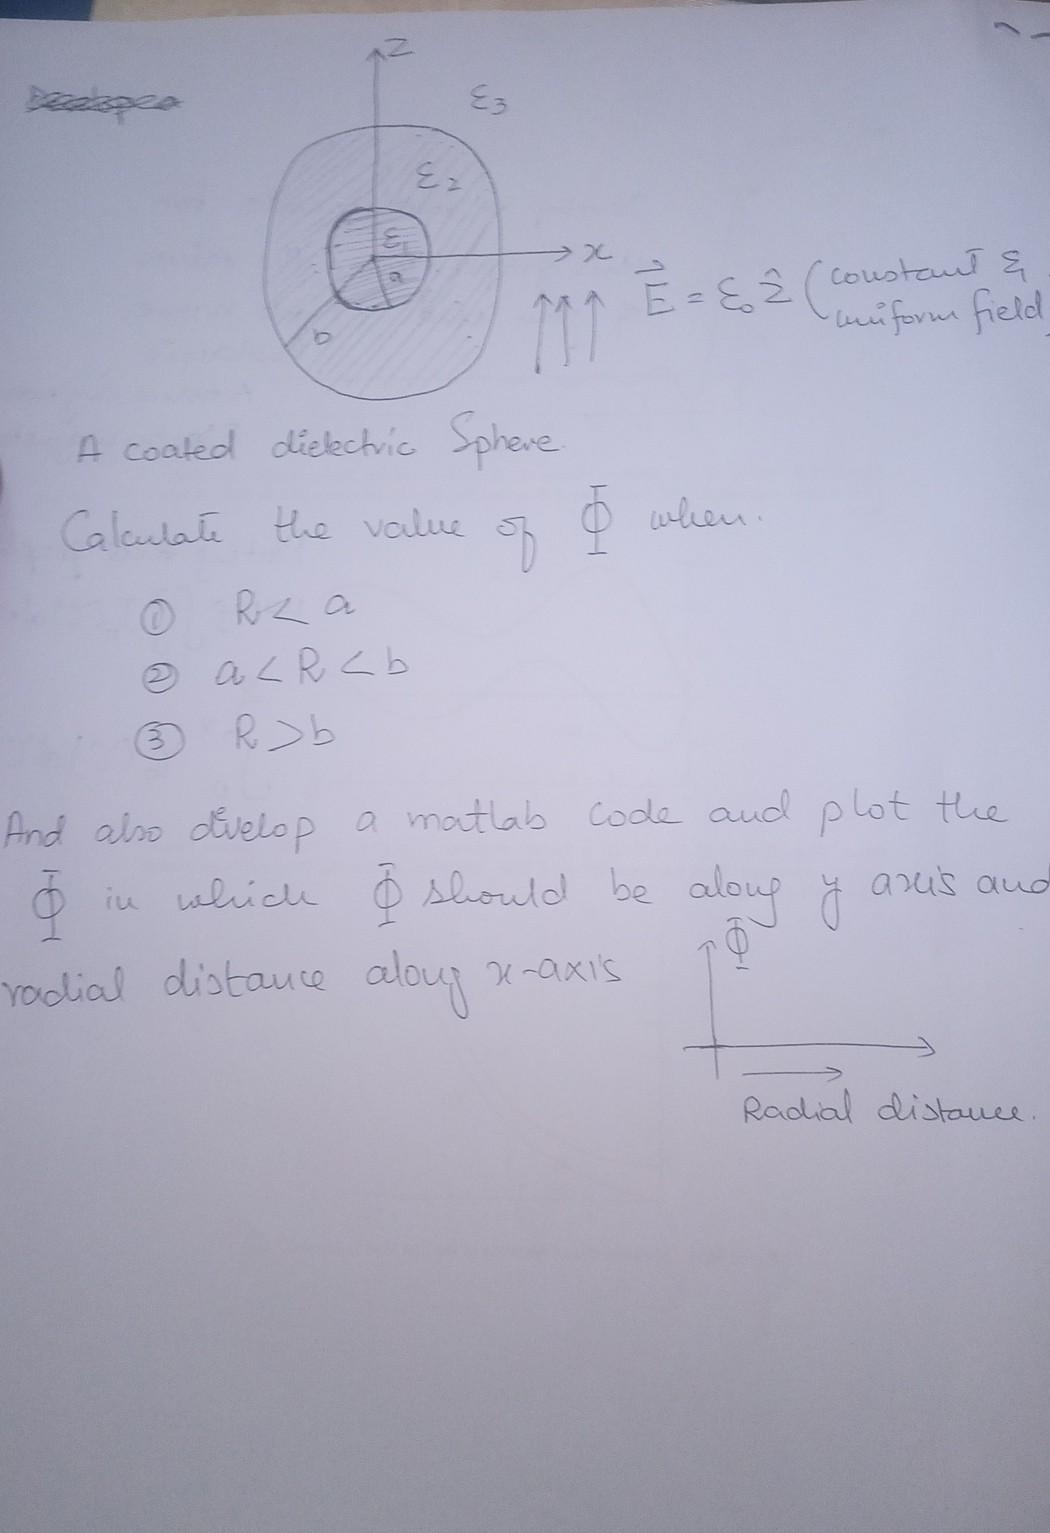 Z
ε3
ε2
ε1
x
a
b
E = ε₀ ẑ (constant &
uniform field)
A coated dielectric Sphere.
Calculate the value of Φ when.
① R < a
② a < R < b
③ R > b
And also develop a matlab code and plot the
Φ in which Φ should be along y axis and
radial distance along x-axis
Φ
Radial distance.